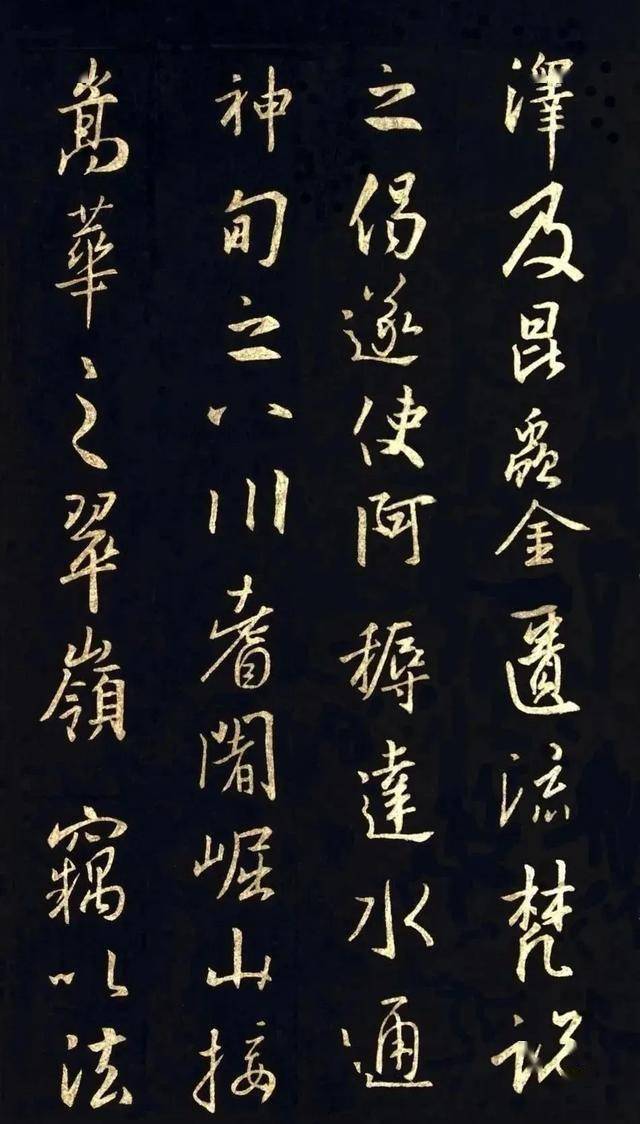 澤及昆蟲金匱流梵說
之偈遂使阿耨達水通
神甸之八川耆闍崛山接
嵩華之翠嶺竊以法